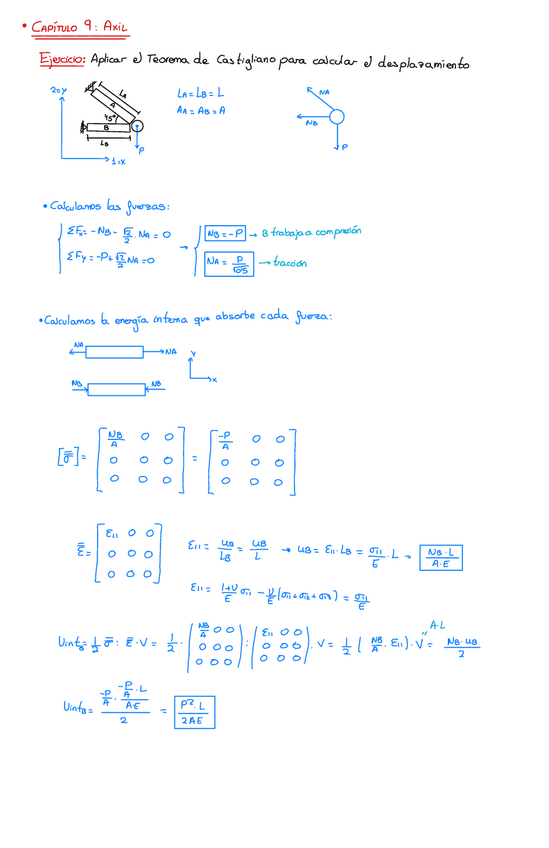 • CAPÍTULO 9: AXIL
Ejercicio: Aplicar el Teorema de Castigliano para calcular el desplazamiento
2=y
LA
A
45°
B
LB
P
1=x
LA = LB = L
AA = AB = A
NA
NB
P
• Calculamos las fuerzas:
ΣFx = -NB - √2/2 · NA = 0
ΣFy = -P + √2/2 NA = 0
→
NB = -P → B trabaja a compresión
NA = P/√0'5 → tracción
• Calculamos la energía interna que absorbe cada fuerza:
NA
NA
Y
X
NB
NB
[σ̿] = [NB/A 0 0; 0 0 0; 0 0 0] = [-P/A 0 0; 0 0 0; 0 0 0]
ε̿ = [ε11 0 0; 0 0 0; 0 0 0]
ε11 = uB/LB = uB/L → uB = ε11 · LB = σ11/E · L = NB · L/A · E
ε11 = 1+ν/E σ11 - ν/E (σ11 + σ12 + σ13) = σ11/E
UintB = 1/2 σ̿ : ε̿ · V = 1/2 · (NB/A 0 0; 0 0 0; 0 0 0) : (ε11 0 0; 0 0 0; 0 0 0) · V = 1/2 (NB/A · ε11) · V = NB · uB/2
A·L
UintB = -P/A · -P/A · L/AE / 2 = P² · L/2AE